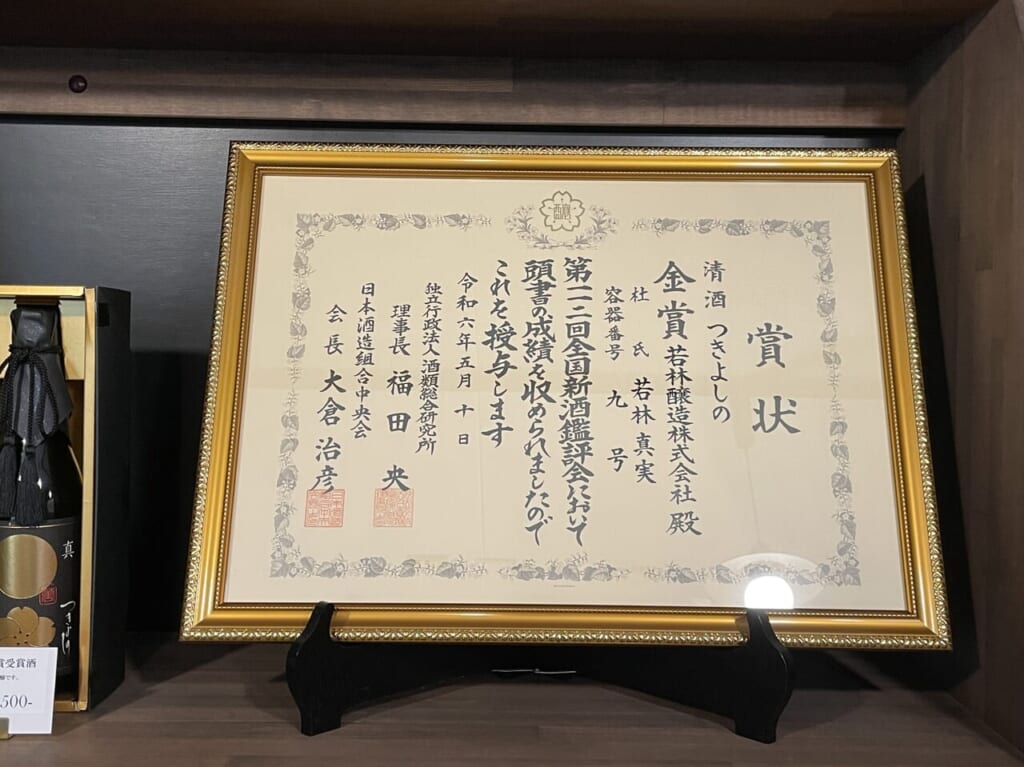 醸
賞状
清酒 つきよしの
金賞 若林醸造株式会社 殿
杜氏 若林真実
容器番号 九号
第一一二回全国新酒鑑評会において
頭書の成績を収められましたので
これを授与します
令和六年五月十日
独立行政法人酒類総合研究所
理事長 福田 央
日本酒造組合中央会
会長 大倉治彦
真
つきよしの
賞受賞酒
500-